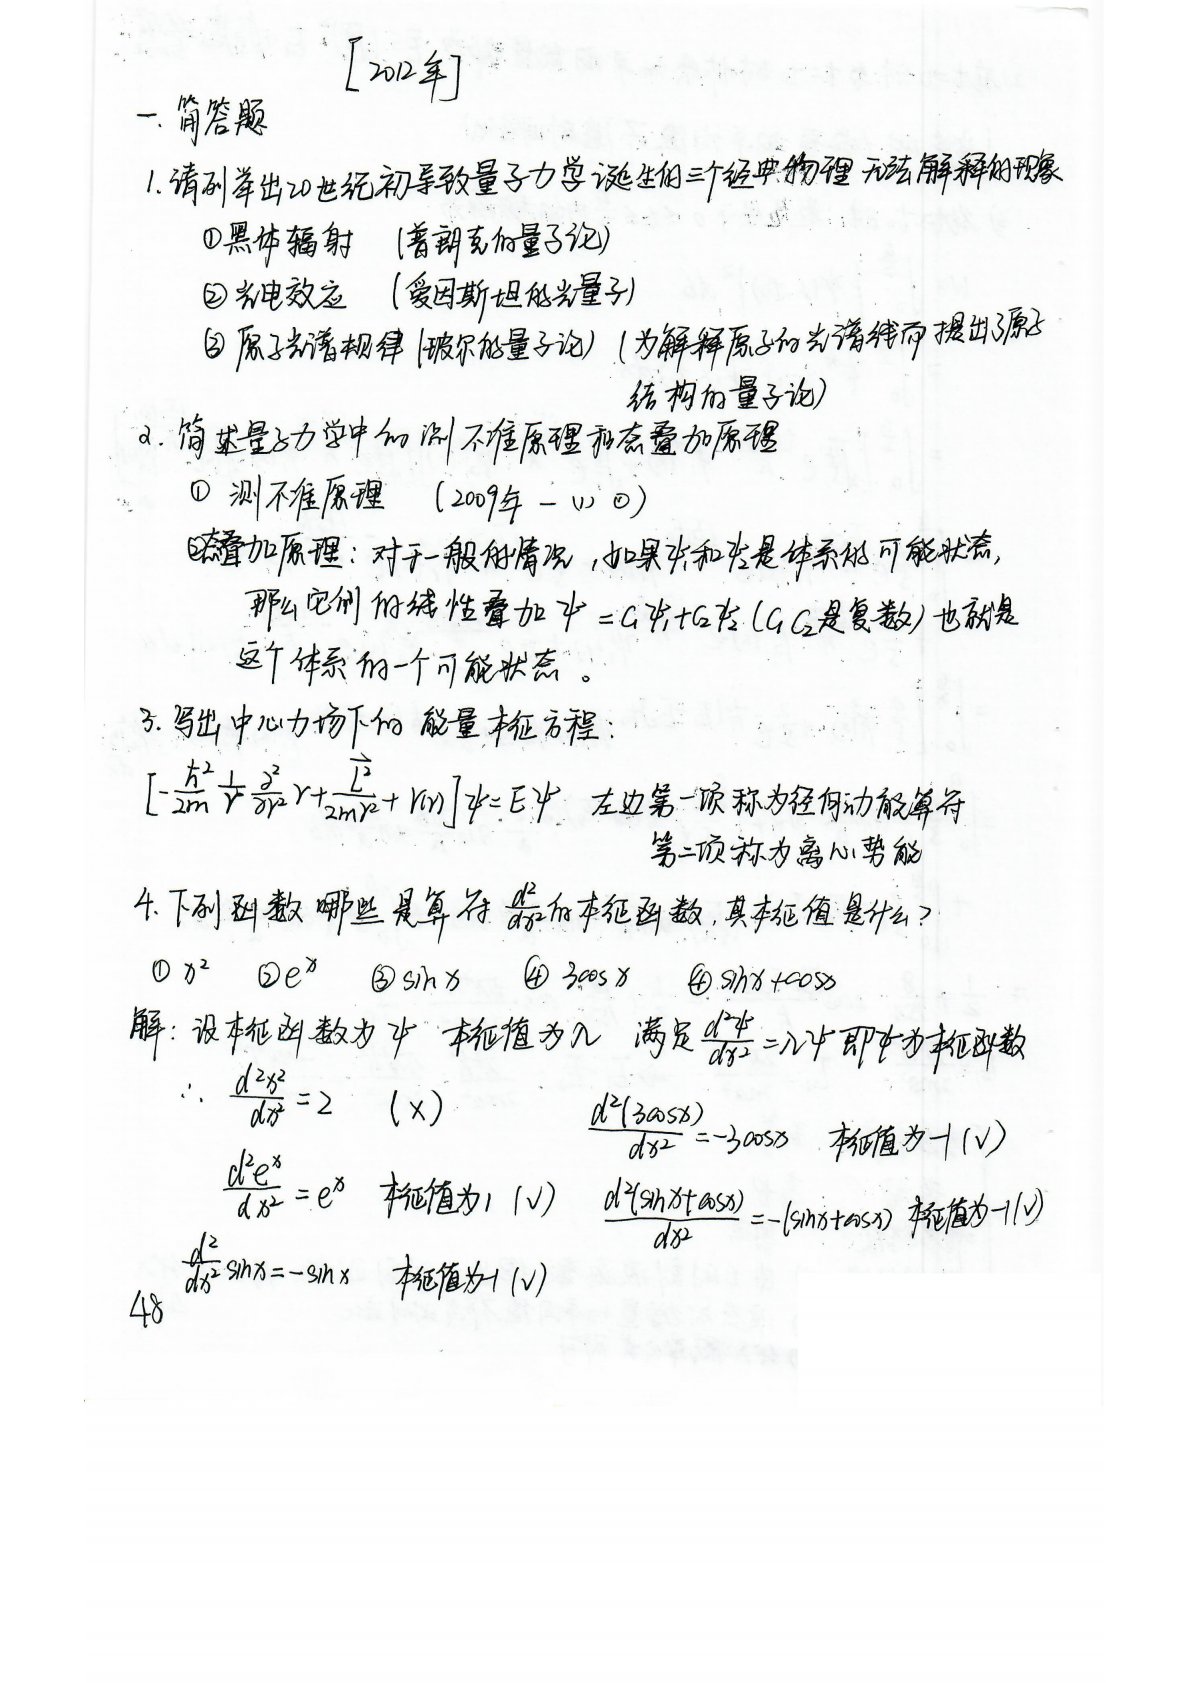 [2012年]
一. 简答题
1. 请列举出20世纪初导致量子力学诞生的三个经典物理无法解释的现象
①黑体辐射 (普朗克的量子论)
②光电效应 (爱因斯坦的光量子)
③原子光谱规律 (玻尔的量子论) (为解释原子的光谱线而提出了原子
结构的量子论)
2. 简述量子力学中的测不准原理和态叠加原理
① 测不准原理 (2009年 一 (1) ②)
②态叠加原理: 对于一般的情况, 如果ψ₁和ψ₂是体系的可能状态,
那么它们的线性叠加ψ=C₁ψ₁+C₂ψ₂ (C₁C₂是复数) 也就是
这个体系的一个可能状态。
3. 写出中心力场下的能量本征方程:
[-ħ²/2m 1/r ∂²/∂r² r + L⃗²/2mr² + V(r)]ψ=Eψ 左边第一项称为径向动能算符
第二项称为离心势能
4. 下列函数哪些是算符 d²/dx² 的本征函数, 其本征值是什么?
① x² ② eˣ ③ sinx ④ 3cosx ④ sinx+cosx
解: 设本征函数为ψ 本征值为λ 满足 d²ψ/dx²=λψ 即ψ为本征函数
∴ d²x²/dx²=2 (×)
d²(3cosx)/dx²=-3cosx 本征值为-1 (√)
d²eˣ/dx²=eˣ 本征值为1 (√)
d²(sinx+cosx)/dx²=-(sinx+cosx) 本征值为-1(√)
d²/dx² sinx=-sinx 本征值为-1(√)
48